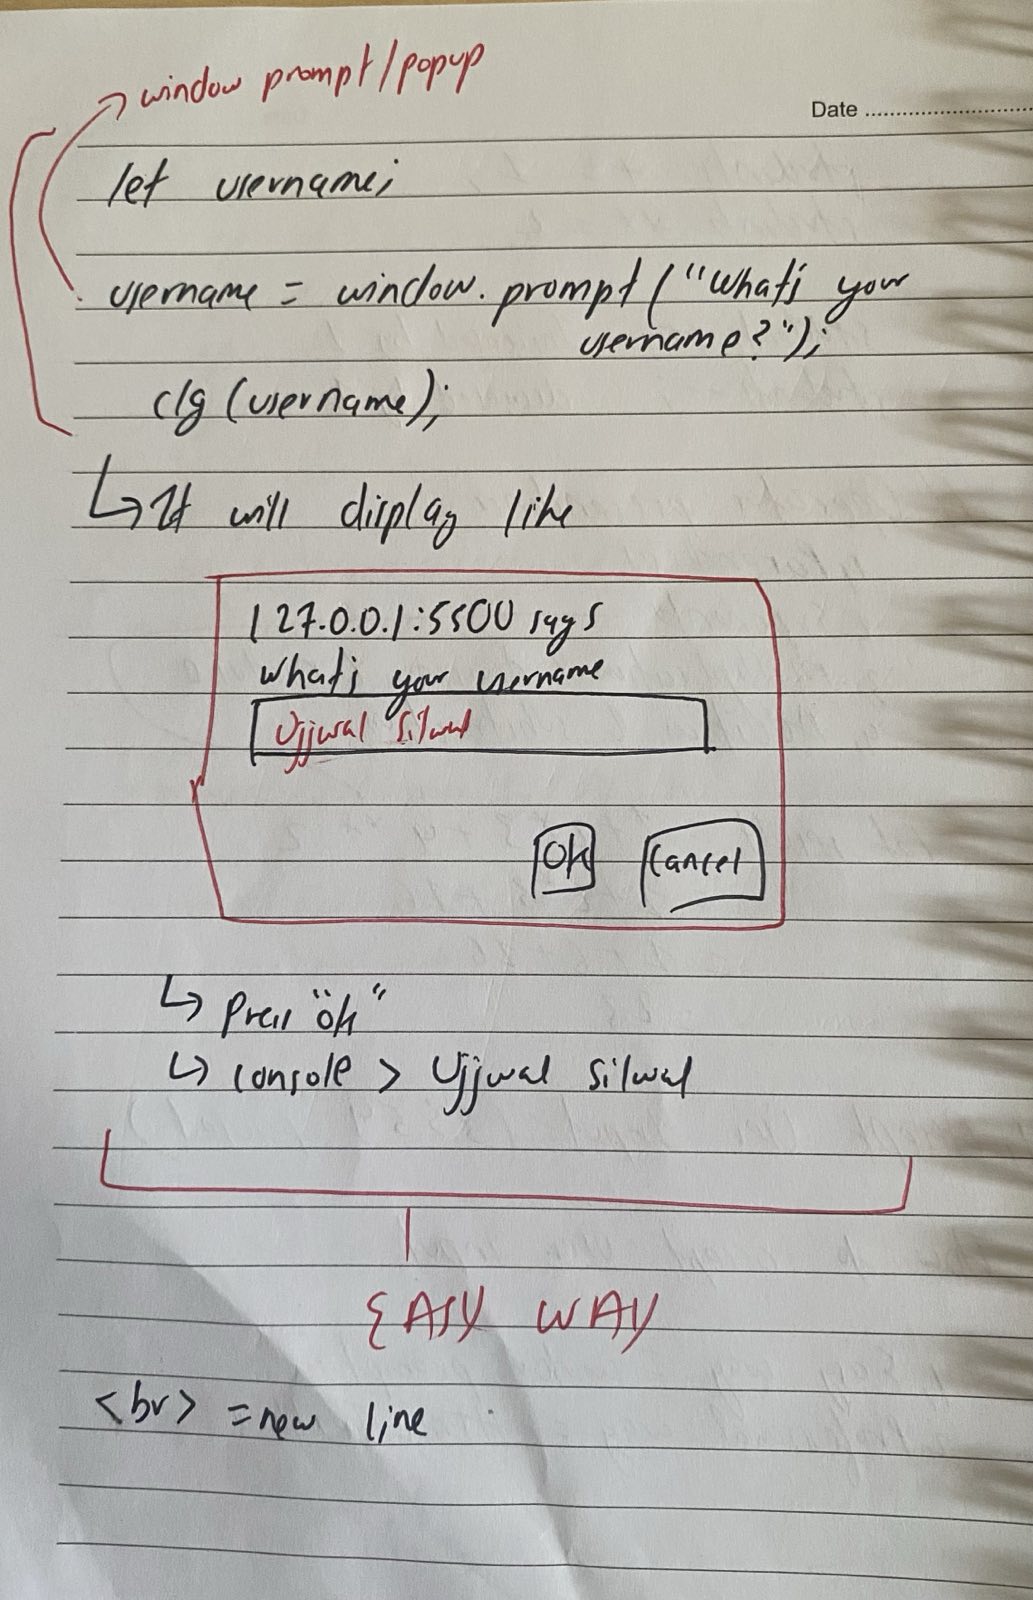 window prompt/popup
Date
let username;
username = window.prompt("What's your
username?");
clg (username);
It will display like
127.0.0.1:5500 says
What's your username
Ujjwal Silwal
OK
Cancel
Press "ok"
console > Ujjwal Silwal
EASY WAY
<br> = new line